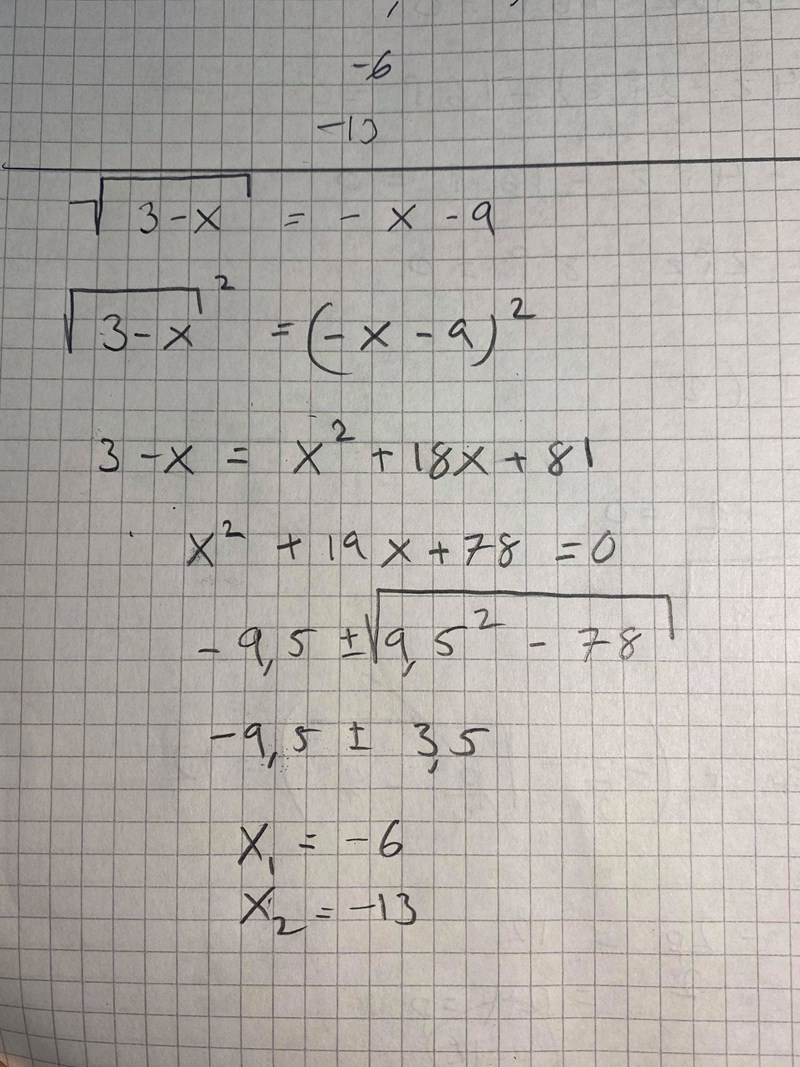 -6
-13
√(3-x) = -x-9
√(3-x)² = (-x-9)²
3-x = x²+18x+81
x²+19x+78=0
-9,5 ±√(9,5²-78)
-9,5 ± 3,5
x₁ = -6
x₂ = -13